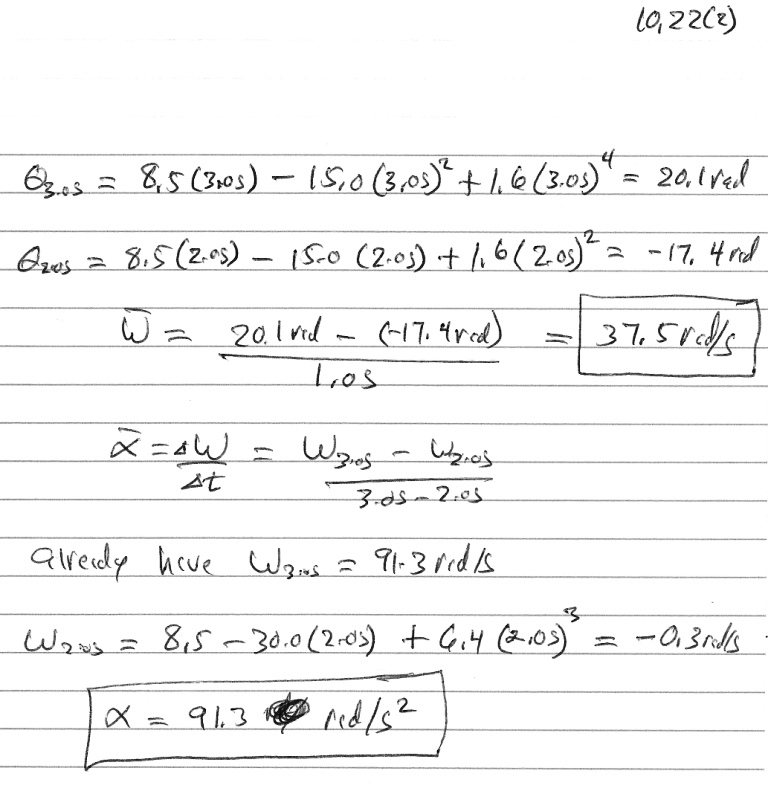 10,22(2)
θ3.0s = 8,5(3.0s) - 15,0(3,0s)² + 1.6(3.0s)⁴ = 20.1 rad
θ2.0s = 8.5(2.0s) - 15.0 (2.0s) + 1,6(2.0s)² = -17.4 rad
ω̄ = (20.1 rad - (-17.4 rad)) / 1,0s = 37.5 rad/s
ᾱ = Δω/Δt = (ω3.0s - ω2.0s) / (3.0s - 2.0s)
already have ω3.0s = 91.3 rad/s
ω2.0s = 8,5 - 30.0(2.0s) + 6,4 (2.0s)³ = -0.3 rad/s
α = 91.3 rad/s²